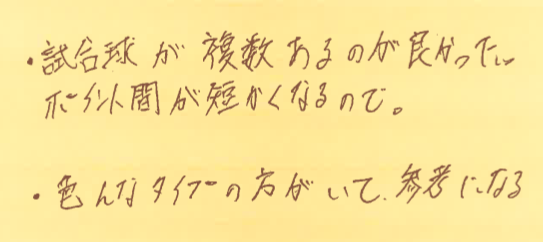 ・試合球が複数あるのが良かったい
ポイント間が短かくなるので。
・色んなタイプの方がいて、参考になる